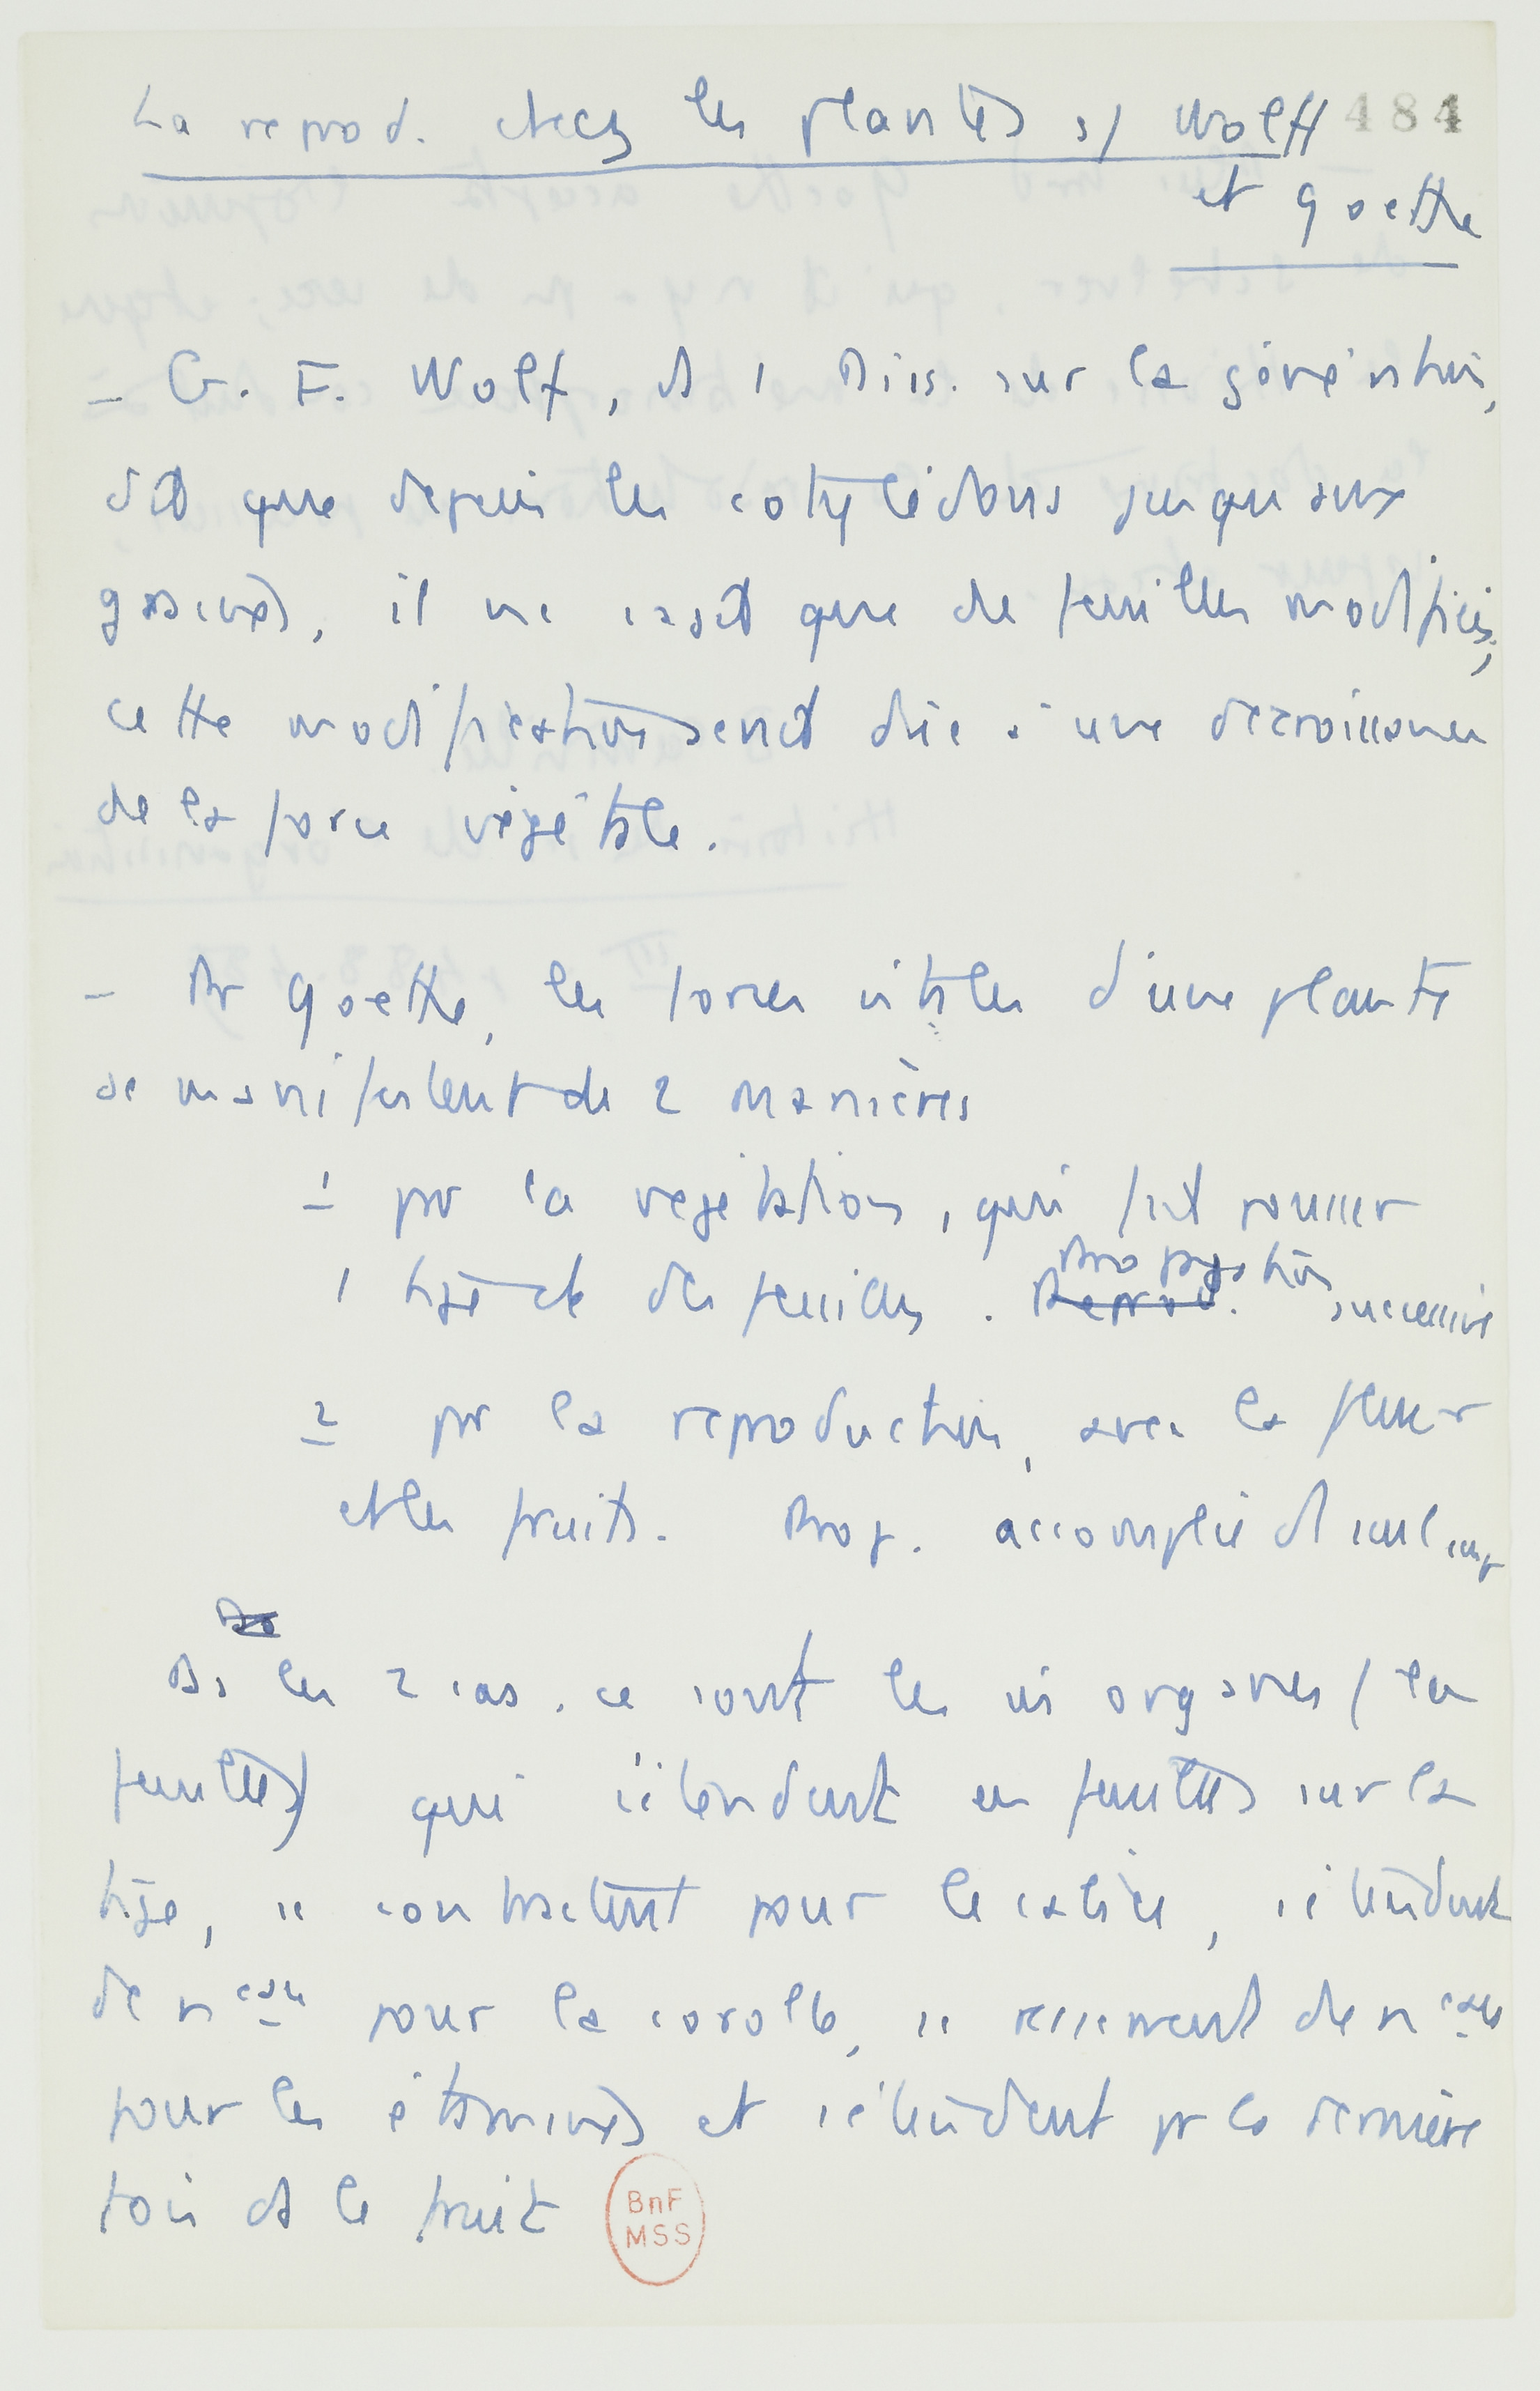 La reprod. chez les plantes s/ Wolff 484
et Goethe
– G. F. Wolf, ds 1 Diss. sur la génération,
dit que depuis les cotylédons jusqu'aux
graines, il ne croit que de feuilles modifiées;
cette modification serait dûe à une décroissance
de la force végétale.
– Pr Goethe, les forces vitales d'une plante
se manifestent de 2 manières
1 par la végétation, qui fait pousser
1 tige et des feuilles. Reprod. Propagation successive
2 par la reproduction, avec la fleur
et les fruits. Prop. accomplie d'1 seul coup
Ds les 2 cas, ce sont les mêmes organes (les
feuilles) qui s'étendent en feuilles sur la
tige, se contractent pour le calice, s'étendent
de nveau pour la corolle, se resserrent de nveau
pour les étamines et s'étendent pr la dernière
fois ds le fruit
BnF
MSS